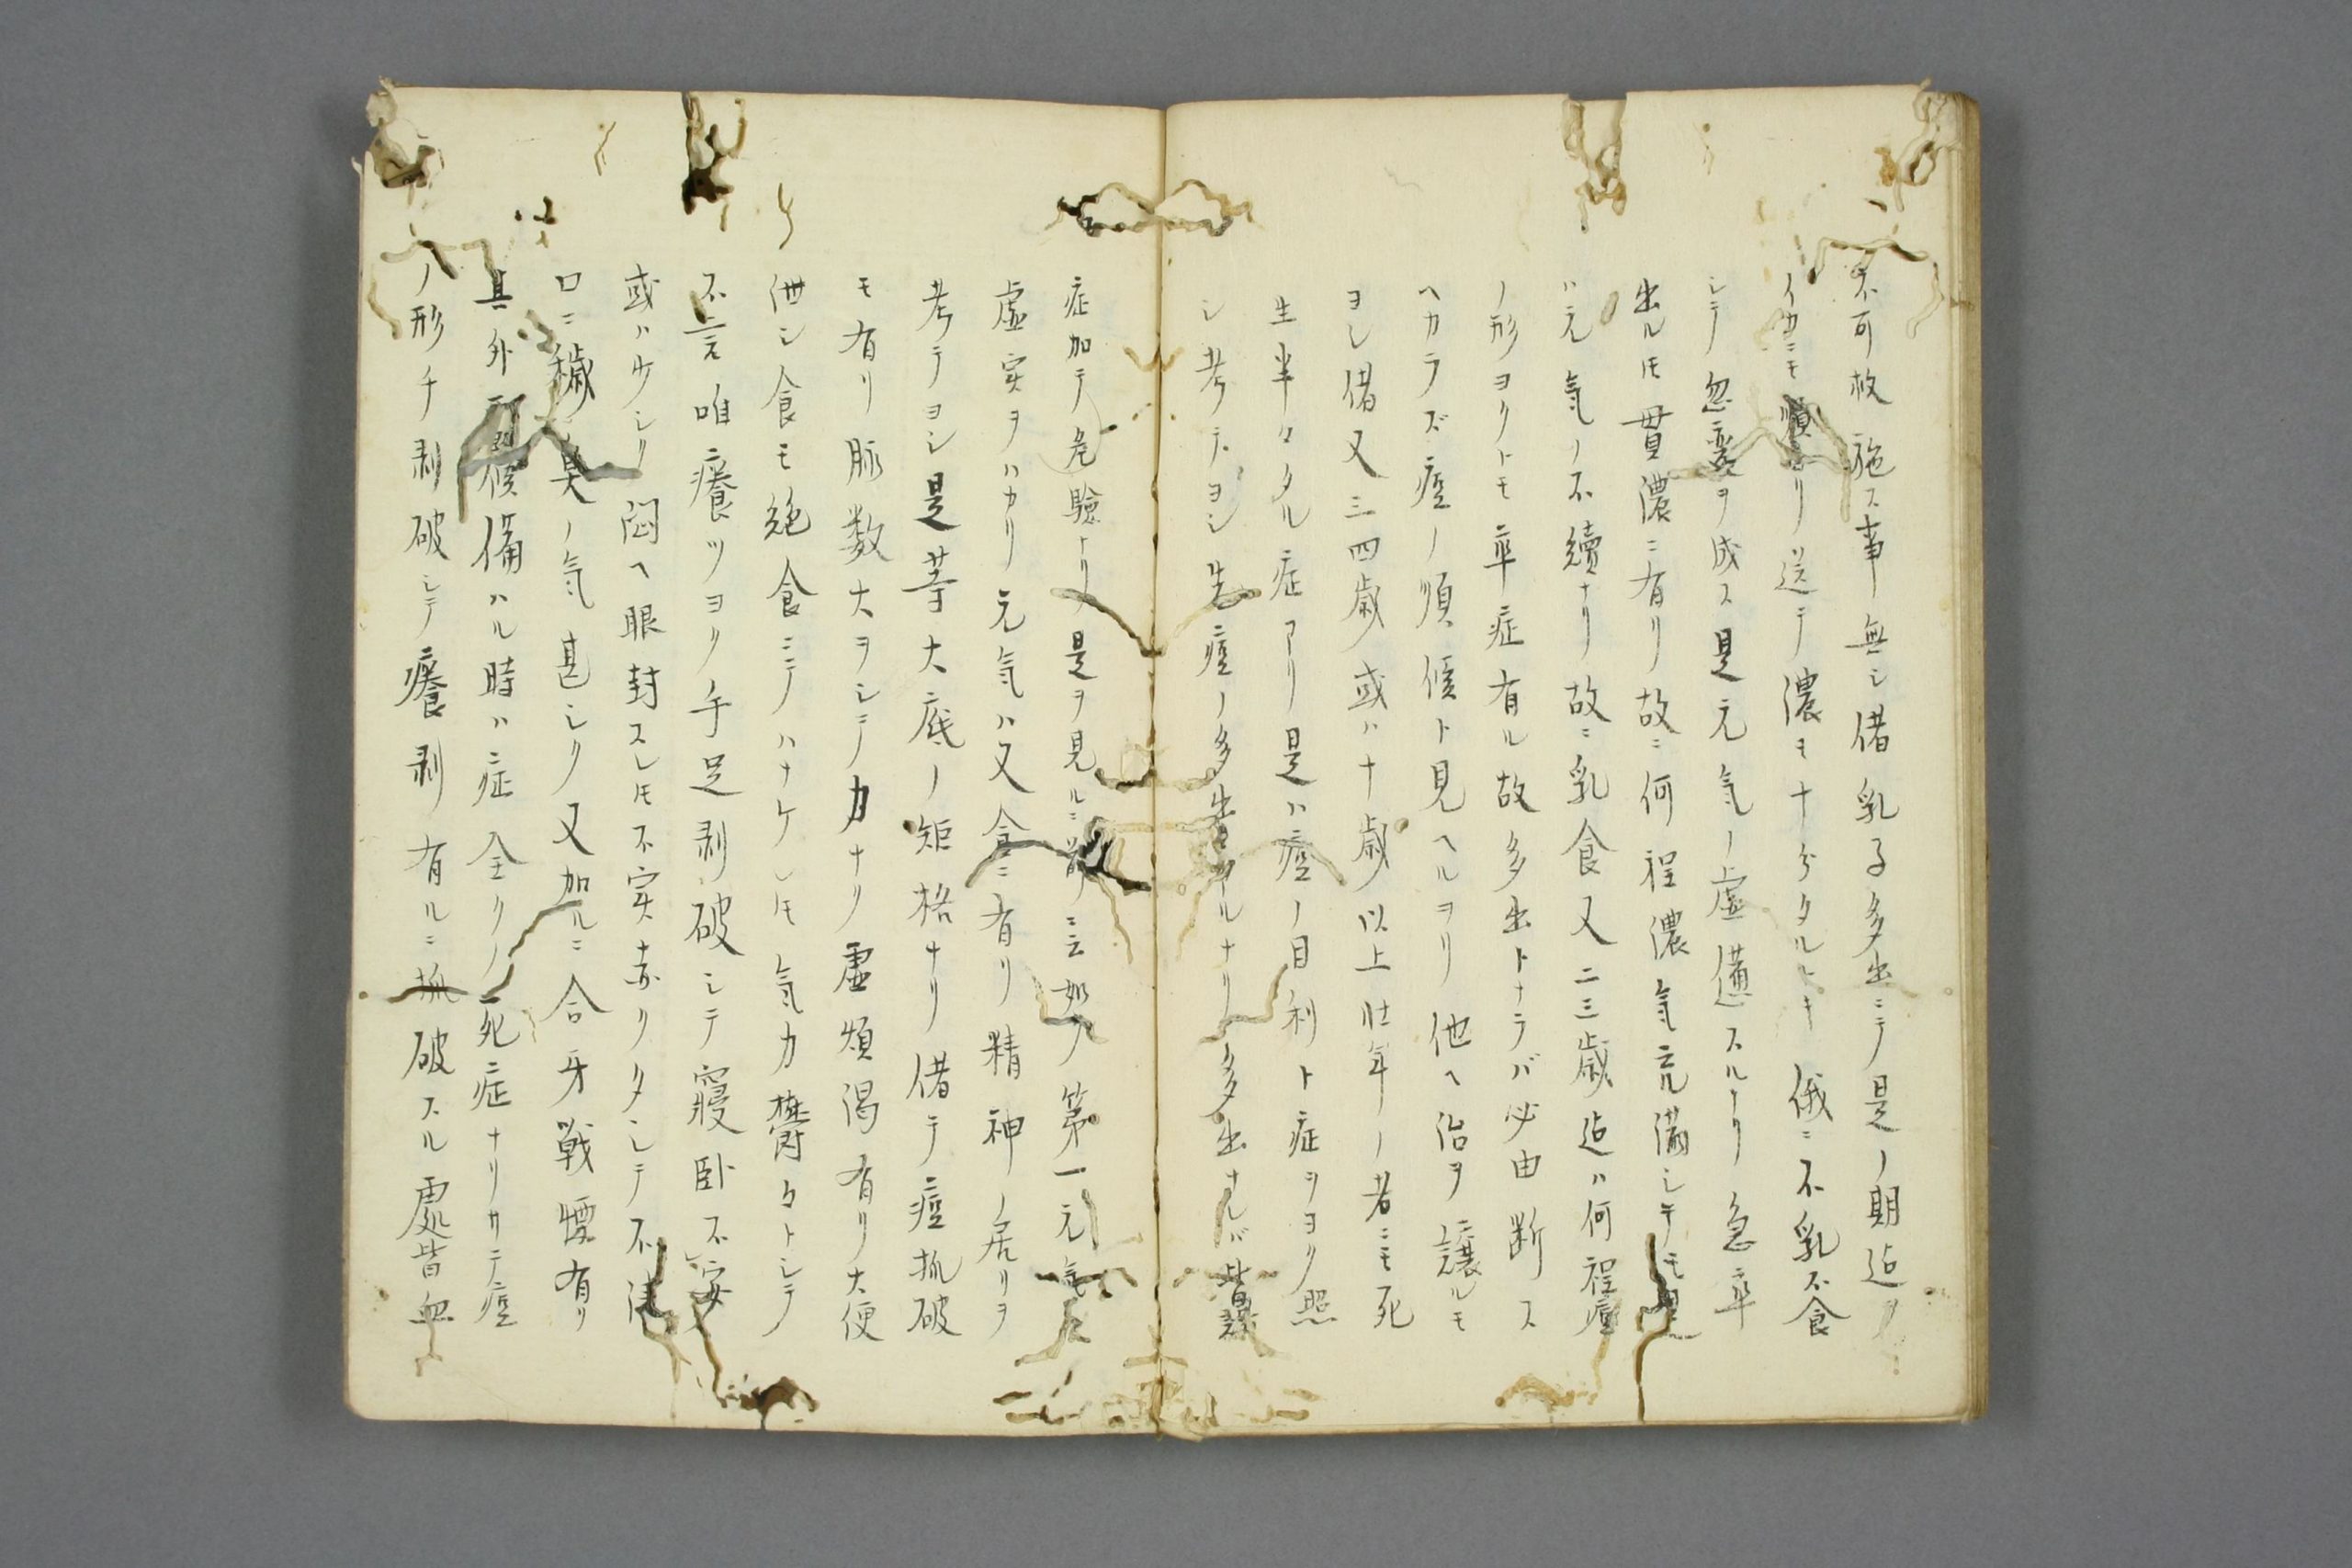 不可救施ス事無シ偖乳子多出ニテ是ノ期迠ヲ
イカニモ順ヨリ送テ濃モ十分タルトキ俄ニ不乳不食
シテ忽変ヲ成ス是元気ノ虚憊スルナリ急卒
出ルㇳモ貫濃ニ有リ故ニ何程濃気充満シテモ
ハ元気ノ不續ナリ故ニ乳食又二三歳迠ハ何程痘
ノ形ヨクトモ卒症有ル故多出トナラバ必由断ス
ヘカラズ痘ノ順候ト見ヘルヨリ他ヘ治ヲ譲ルモ
ヨシ偖又三四歳或ハ十歳以上壮年ノ者ニモ死
生半々タル症アリ是ハ痘ノ目利ト症ヲヨク照
シ考テヨシ先痘ノ多出タルナリ多出ナレバ皆
症加テ危驗ナリ是ヲ見ルニ前ニ云如ク第一元気
虚実ヲハカリ元気ハ又食ニ有リ精神ノ居リヲ
考テヨシ是等大底ノ矩格ナリ偖テ痘抓破
モ有リ脉数大ヲシテ力ナク虚煩渇有リ大便
泄シ食モ絶食ニテハナケレㇳモ気力欝々トシテ
不言唯癢ツヨク手足剥破シテ寝卧不安
或ハ少シク悶ヘ眼封スレㇳモ不実赤クタシテ不
口ニ穢臭ノ気甚シク又加ルニ合牙戦慄有リ
其外悪候備ハル時ハ症全クノ死症ナリカテ痘
ノ形チ剥破シテ癢剥有ルニ抓破スル處皆血